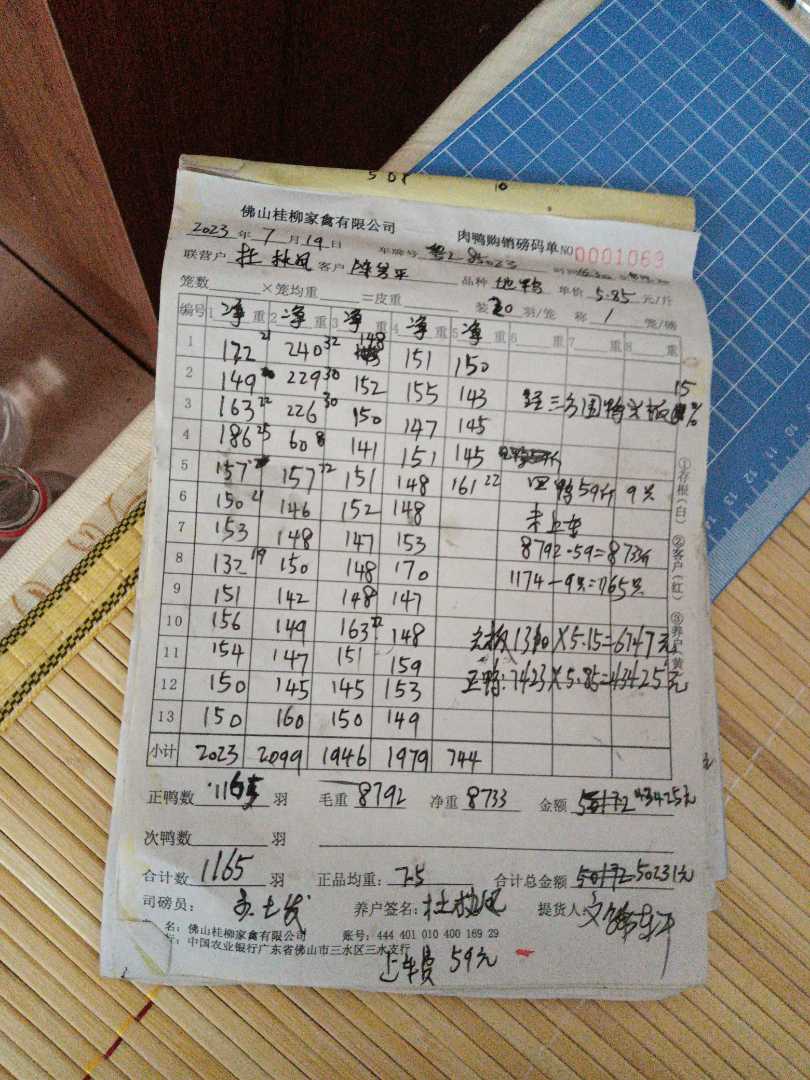 佛山桂柳家禽有限公司 肉鸭购销磅码单 NO 0001069
2023年7月19日 车牌号
联营户 杜 客户 平 品种 地鸭 单价 5.85 元/斤
笼数 ×笼均重 =皮重 装 羽/笼 称 1 笼/磅
编号 1净重 2净重 3净重 4净重 5净重 6 重 7 重 8 重
1 132 21 240 32 148 151 150
2 149 229 30 152 155 143 15
3 163 22 226 30 150 147 145 %
4 186 25 60 8 141 151 145
5 157 157 22 151 148 161 22 59斤 9只
6 150 21 146 152 148 未上车
7 153 148 147 153 8792-59=8733斤
8 132 19 150 148 170 1174-9只=1165只
9 151 142 148 147
10 156 149 163 22 148 1310×5.15=6747元
11 154 147 151 159
12 150 145 145 153 正鸭:7423×5.85=43425元
13 150 160 150 149
小计 2023 2099 1946 1979 744
正鸭数 1165 羽 毛重 8792 净重 8733 金额 43425元
次鸭数 羽
合计数 1165 羽 正品均重: 7.5 合计总金额 50172 50231元
司磅员: 养户签名: 杜 提货人:
名:佛山桂柳家禽有限公司 账号:444 401 010 400 169 29
行:中国农业银行广东省佛山市三水区三水支行
上车费 59元
①存根(白) ②客户(红) ③养户(黄